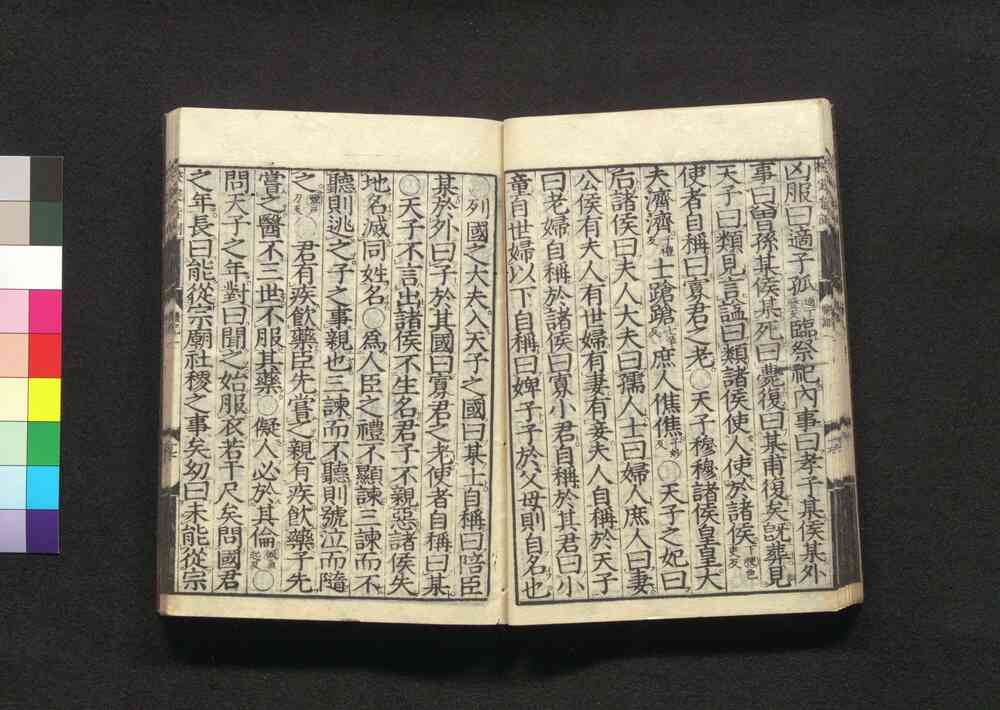 凶服曰適子孤臨祭祀內事曰孝子某侯某外
事曰曽孫某侯某死曰薨復曰某甫復矣旣葬見
天子曰類見言謚曰類諸侯使人使於諸侯
使者自稱曰寡君之老○天子穆穆諸侯皇皇大
夫濟濟士蹌蹌庶人僬僬○天子之妃曰
后諸侯曰夫人大夫曰孺人士曰婦人庶人曰妻
公侯有夫人有世婦有妻有妾夫人自稱於天子
曰老婦自稱於諸侯曰寡小君自稱於其君曰小
童自世婦以下自稱曰婢子子於父母則自名也
○列國之大夫入天子之國曰某士自稱曰陪臣
某於外曰子於其國曰寡君之老使者自稱曰某
○天子不言出諸侯不生名君子不親惡諸侯失
地名滅同姓名○爲人臣之禮不顯諫三諫而不
聽則逃之子之事親也三諫而不聽則號泣而隨
之○君有疾飮藥臣先嘗之親有疾飮藥子先
嘗之醫不三世不服其藥○儗人必於其倫○
問天子之年對曰聞之始服衣若干尺矣問國君
之年長曰能從宗廟社稷之事矣幼曰未能從宗